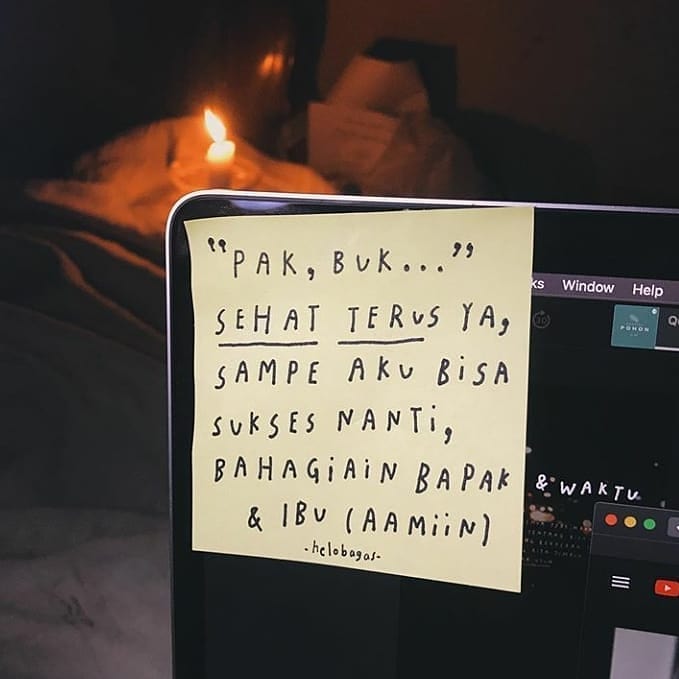 "PAK, BUK..."
SEHAT TERUS YA,
SAMPE AKU BISA
SUKSES NANTI,
BAHAGIAIN BAPAK
& IBU (AAMIIN)
-helobagas-
ks Window Help
30
POHON
& WAKTU